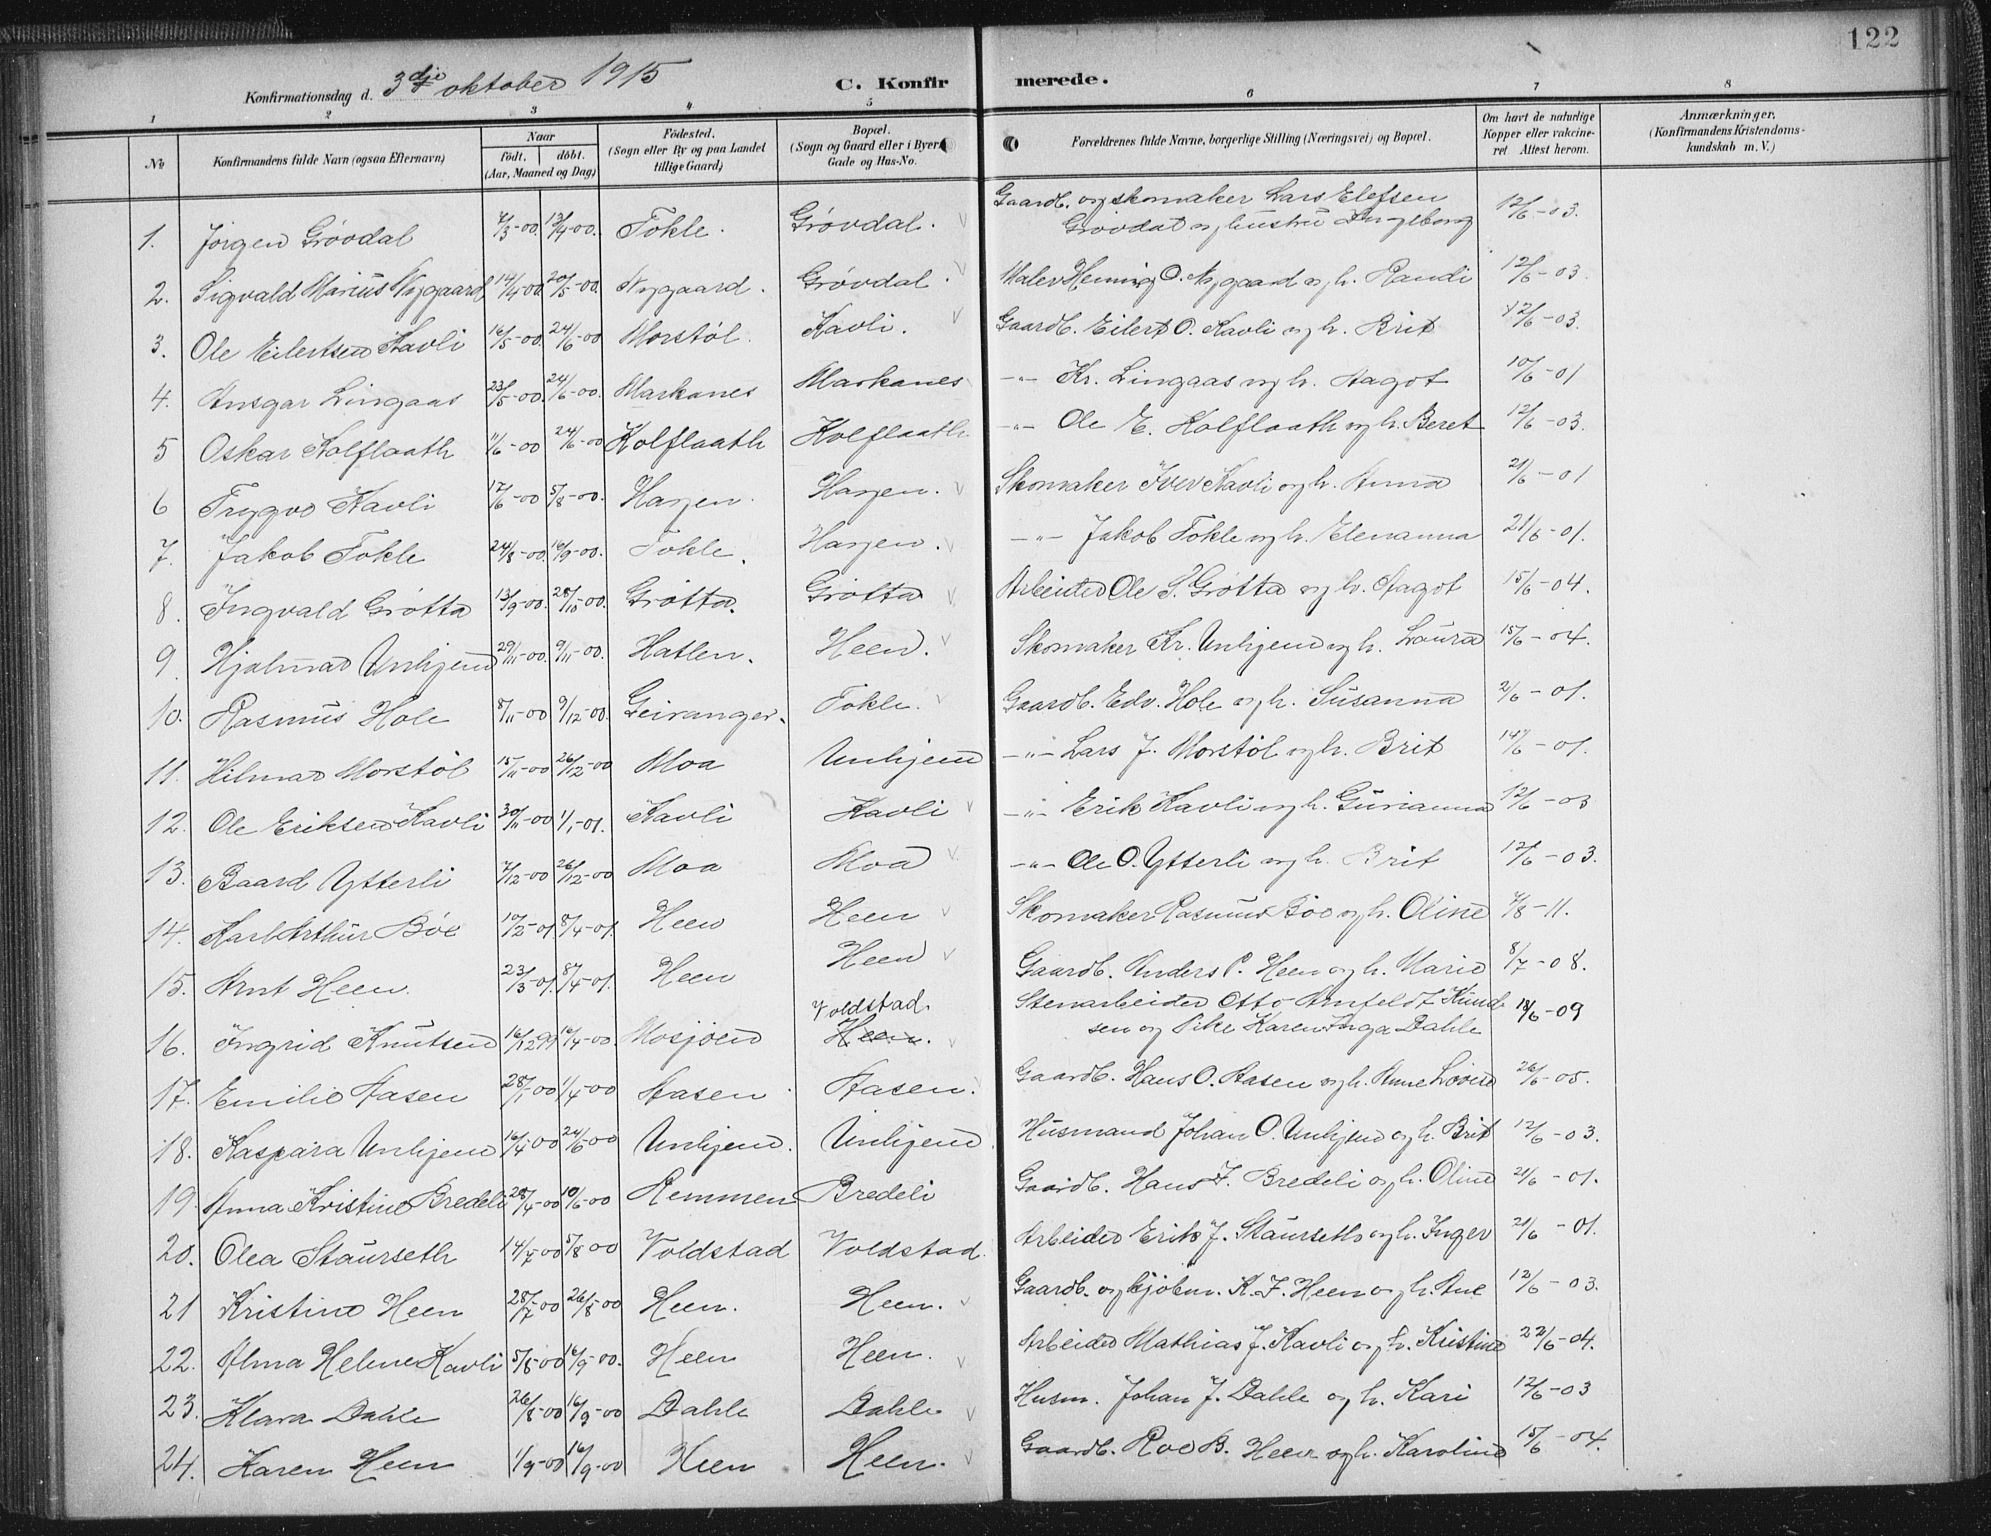 122
Konfirmationsdag d. 3dje oktober 1915 C. Konfirmerede.
1 2 3 4 5 6 7 8
No Konfirmandens fulde Navn (ogsaa Efternavn) Naar født. døbt. (Aar, Maaned og Dag) Fødested. (Sogn eller By og paa Landet tillige Gaard) Bopæl. (Sogn og Gaard eller i Byer Gade og Hus-No. Forældrenes fulde Navne, borgerlige Stilling (Næringsvei) og Bopæl. Om havt de naturlige Kopper eller vakcineret. Attest herom. Anmærkninger. (Konfirmandens Kristendomskundskab m. V.)
1. Jørgen Grøvdal 7/3-00. 13/4-00. Tokle. Grøvdal. Gaardb. og skomaker Lars Elefsen
Grøvdal og hustru Ingeborg 12/6-03.
2. Sigvald Marius Nygaard 14/4-00 20/5-00. Nygaard. Grøvdal. Maler Henning O. Nygaard og h. Randi 12/6-03.
3. Ole Eilertsen Kavli 16/5-00. 24/6-00 Morstøl. Kavli. Gaardb. Eilert O. Kavli og h. Brit 12/6-03.
4. Ansgar Lingaas 23/5-00. 24/6-00. Markanes Markanes -"- Kr. Lingaas og h. Aagot 10/6-01
5 Oskar Kolflaath 11/6-00 24/6-00 Kolflaath Kolflaath. -"- Ole E. Kolflaath og h. Beret 12/6-03.
6 Trygve Kavli 17/6-00 5/8-00. Hasjen. Hasjen. Skomaker Iver Kavli og h. Anna 21/6-01
7. Jakob Tokle 24/8-00. 16/9-00. Tokle. Hasjen. -"- Jakob Tokle og h. Elenanna 21/6-01.
8. Ingvald Grøtta 13/9-00. 28/10-00. Grøtta. Grøtta Arbeider Ole S. Grøtta og h. Aagot 15/6-04.
9. Hjalmar Unhjem 29/11-00. 9/11-00. Hatlen. Heen. Skomaker Kr. Unhjem og h. Laura 15/6-04.
10. Rasmus Hole 8/11-00 9/12-00. Geiranger. Tokle. Gaardb. Edv. Hole og h. Susanna 21/6-01.
11. Hilmar Morstøl 15/11-00 26/12-00 Moa Unhjem -"- Lars J. Morstøl og h. Brit 14/6-01.
12. Ole Eriksen Kavli 30/11-00 1/1-01. Kavli Kavli -"- Erik Kavli og h. Gurianna 12/6-03
13. Baard Ytterli 7/12-00 26/12-00 Moa Moa -"- Ole O. Ytterli og h. Brit 12/6-03.
14. Karl Arthur Bøe 10/2-01 8/4-01. Heen Heen Skomaker Rasmus Bøe og h. Oline 7/8-11.
15. Arnt Heen. 23/3-01. 8/4-01. Heen Heen Gaardb. Anders P. Heen og h. Marie 8/7-08.
16. Ingrid Knutsen 16/12 99 16/4-00. Mosjøen Voldstad Heen. Stenarbeider Otto Arnfeldt Knud
sen og Pike Karen Inga Dahle 18/6-09
17. Emilie Aasen 28/1-00 1/4-00 Aasen Aasen. Gaardb. Hans O. Aasen og h. Anne Lovise 26/6-05.
18. Kaspara Unhjem 16/4-00 24/6-00 Unhjem. Unhjem. Husmand Johan O. Unhjem og h. Brit 12/6-03.
19. Anna Kristine Bredeli 28/4-00 10/6-00 Remmen Bredeli Gaardb. Hans J. Bredeli og h. Oline 21/6-01.
20. Olea Staurseth 14/7-00 5/8 00 Voldstad Voldstad. Arbeider Erik J. Staurseth og h. Inger 21/6-01.
21 Kristine Heen 28/7-00 26/8 00 Heen. Heen. Gaardb. og kjøbm. K. J. Heen og h. Ane 12/6-03.
22. Alma Helene Kavli 5/8-00 16/9-00. Heen Heen. Arbeider Mathias J. Kavli og h. Kristine 22/6-04.
23. Klara Dahle 26/8-00 16/9-00 Dahle Dahle Husm. Johan J. Dahle og h. Kari 12/6-03
24. Karen Heen 1/9-00 16/9-00 Heen Heen. Gaardb. Roe B. Heen og h. Karoline 15/6-04.